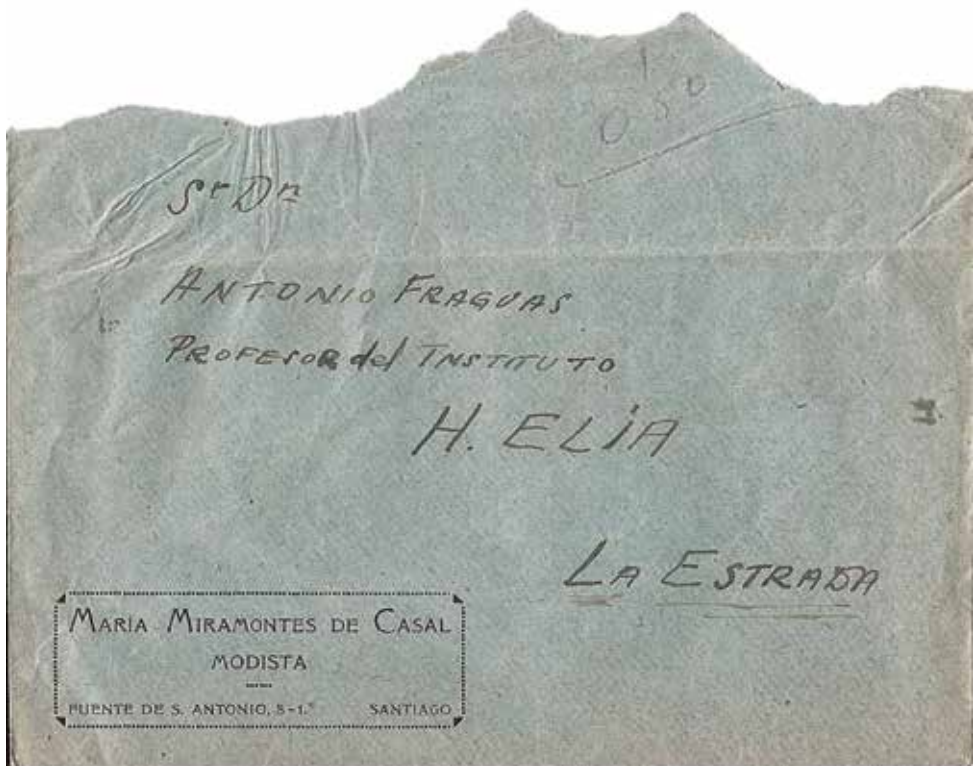 0 50
Sr Dn
ANTONIO FRAGUAS
PROFESOR del INSTITUTO
H. ELíA
LA ESTRADA
MARÍA MIRAMONTES DE CASAL
MODISTA
FUENTE DE S. ANTONIO, 8-1.º SANTIAGO